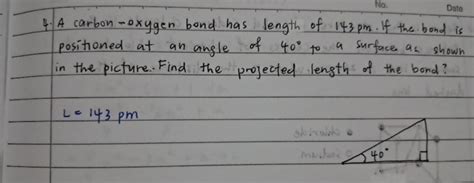 No.
Date
4. A carbon-oxygen bond has length of 143 pm. If the bond is
positioned at an angle of 40° to a surface as shown
in the picture. Find the projected length of the bond?
L = 143 pm
40°